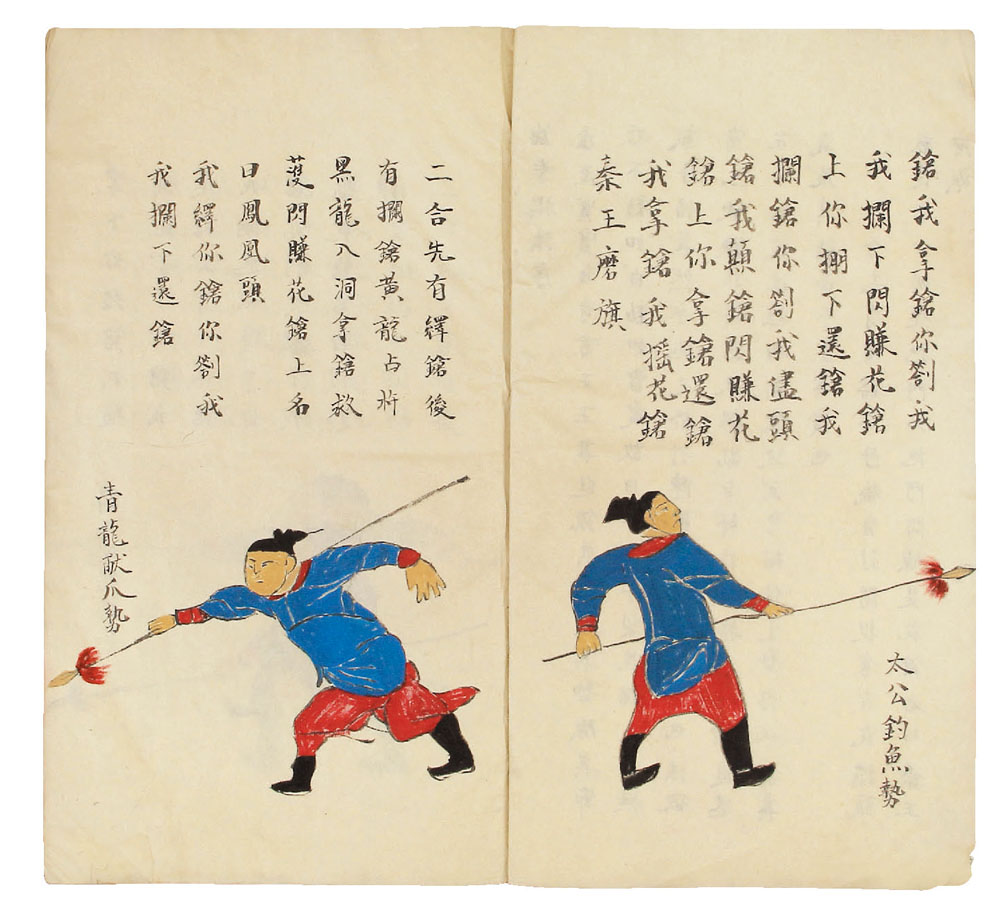 鎗我拿鎗你劄我
我攔下閃賺花鎗
上你掤下還鎗我
攔鎗你劄我儘頭
鎗我顛鎗閃賺花
鎗上你拿鎗還鎗
我拿鎗我搖花鎗
秦王磨旗
太公釣魚勢
二合先有纆鎗後
有攔鎗黃龍占杆
黑龍入洞拿鎗救
護閃賺花鎗上名
曰鳳凰頭
我纆你鎗你劄我
我攔下還鎗
青龍献爪勢